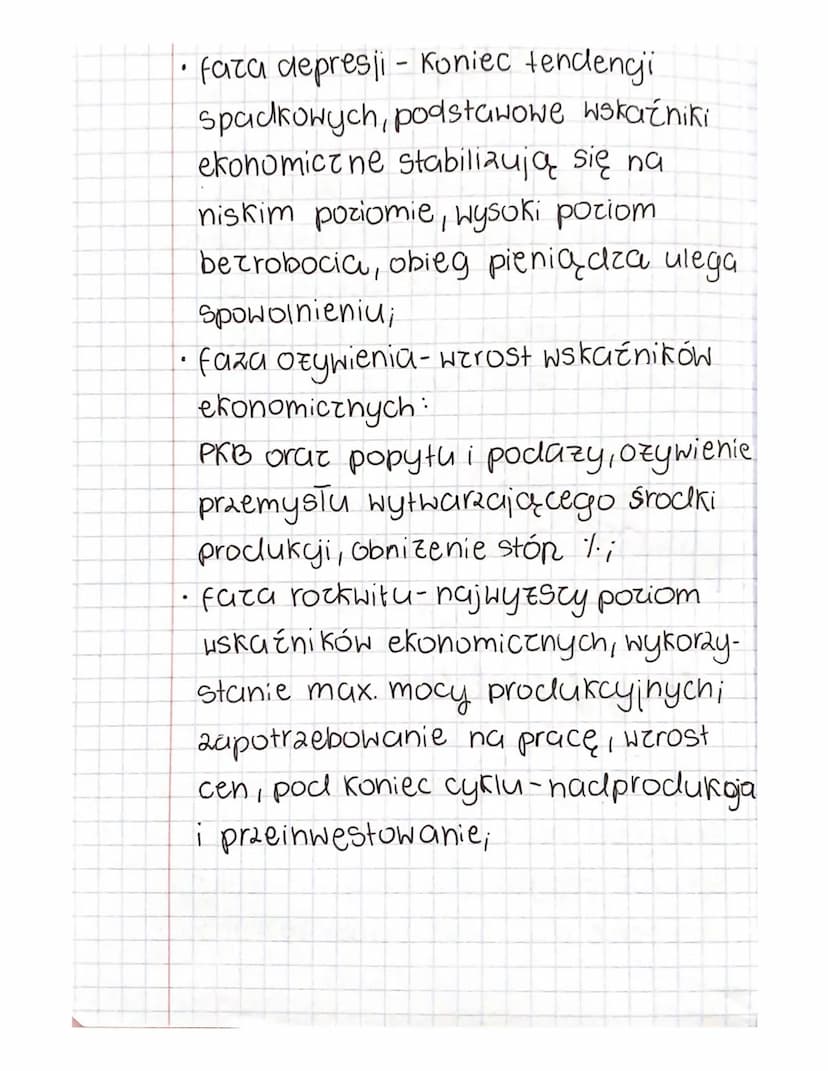 • faza depresji - koniec tendencji
spadkowych, podstawowe wskaźniki
ekonomiczne stabilizują się na
niskim poziomie, wysoki poziom
bezrobocia, obieg pieniądza ulega
spowolnieniu;
• faza ożywienia - wzrost wskaźników
ekonomicznych:
PKB oraz popytu i podaży, ożywienie
przemysłu wytwarzającego środki
produkcji, obniżenie stóp %;
• faza rozkwitu - najwyższy poziom
wskaźników ekonomicznych, wykorzy-
stanie max. mocy produkcyjnych;
zapotrzebowanie na pracę, wzrost
cen, pod koniec cyklu - nadprodukcja
i przeinwestowanie;